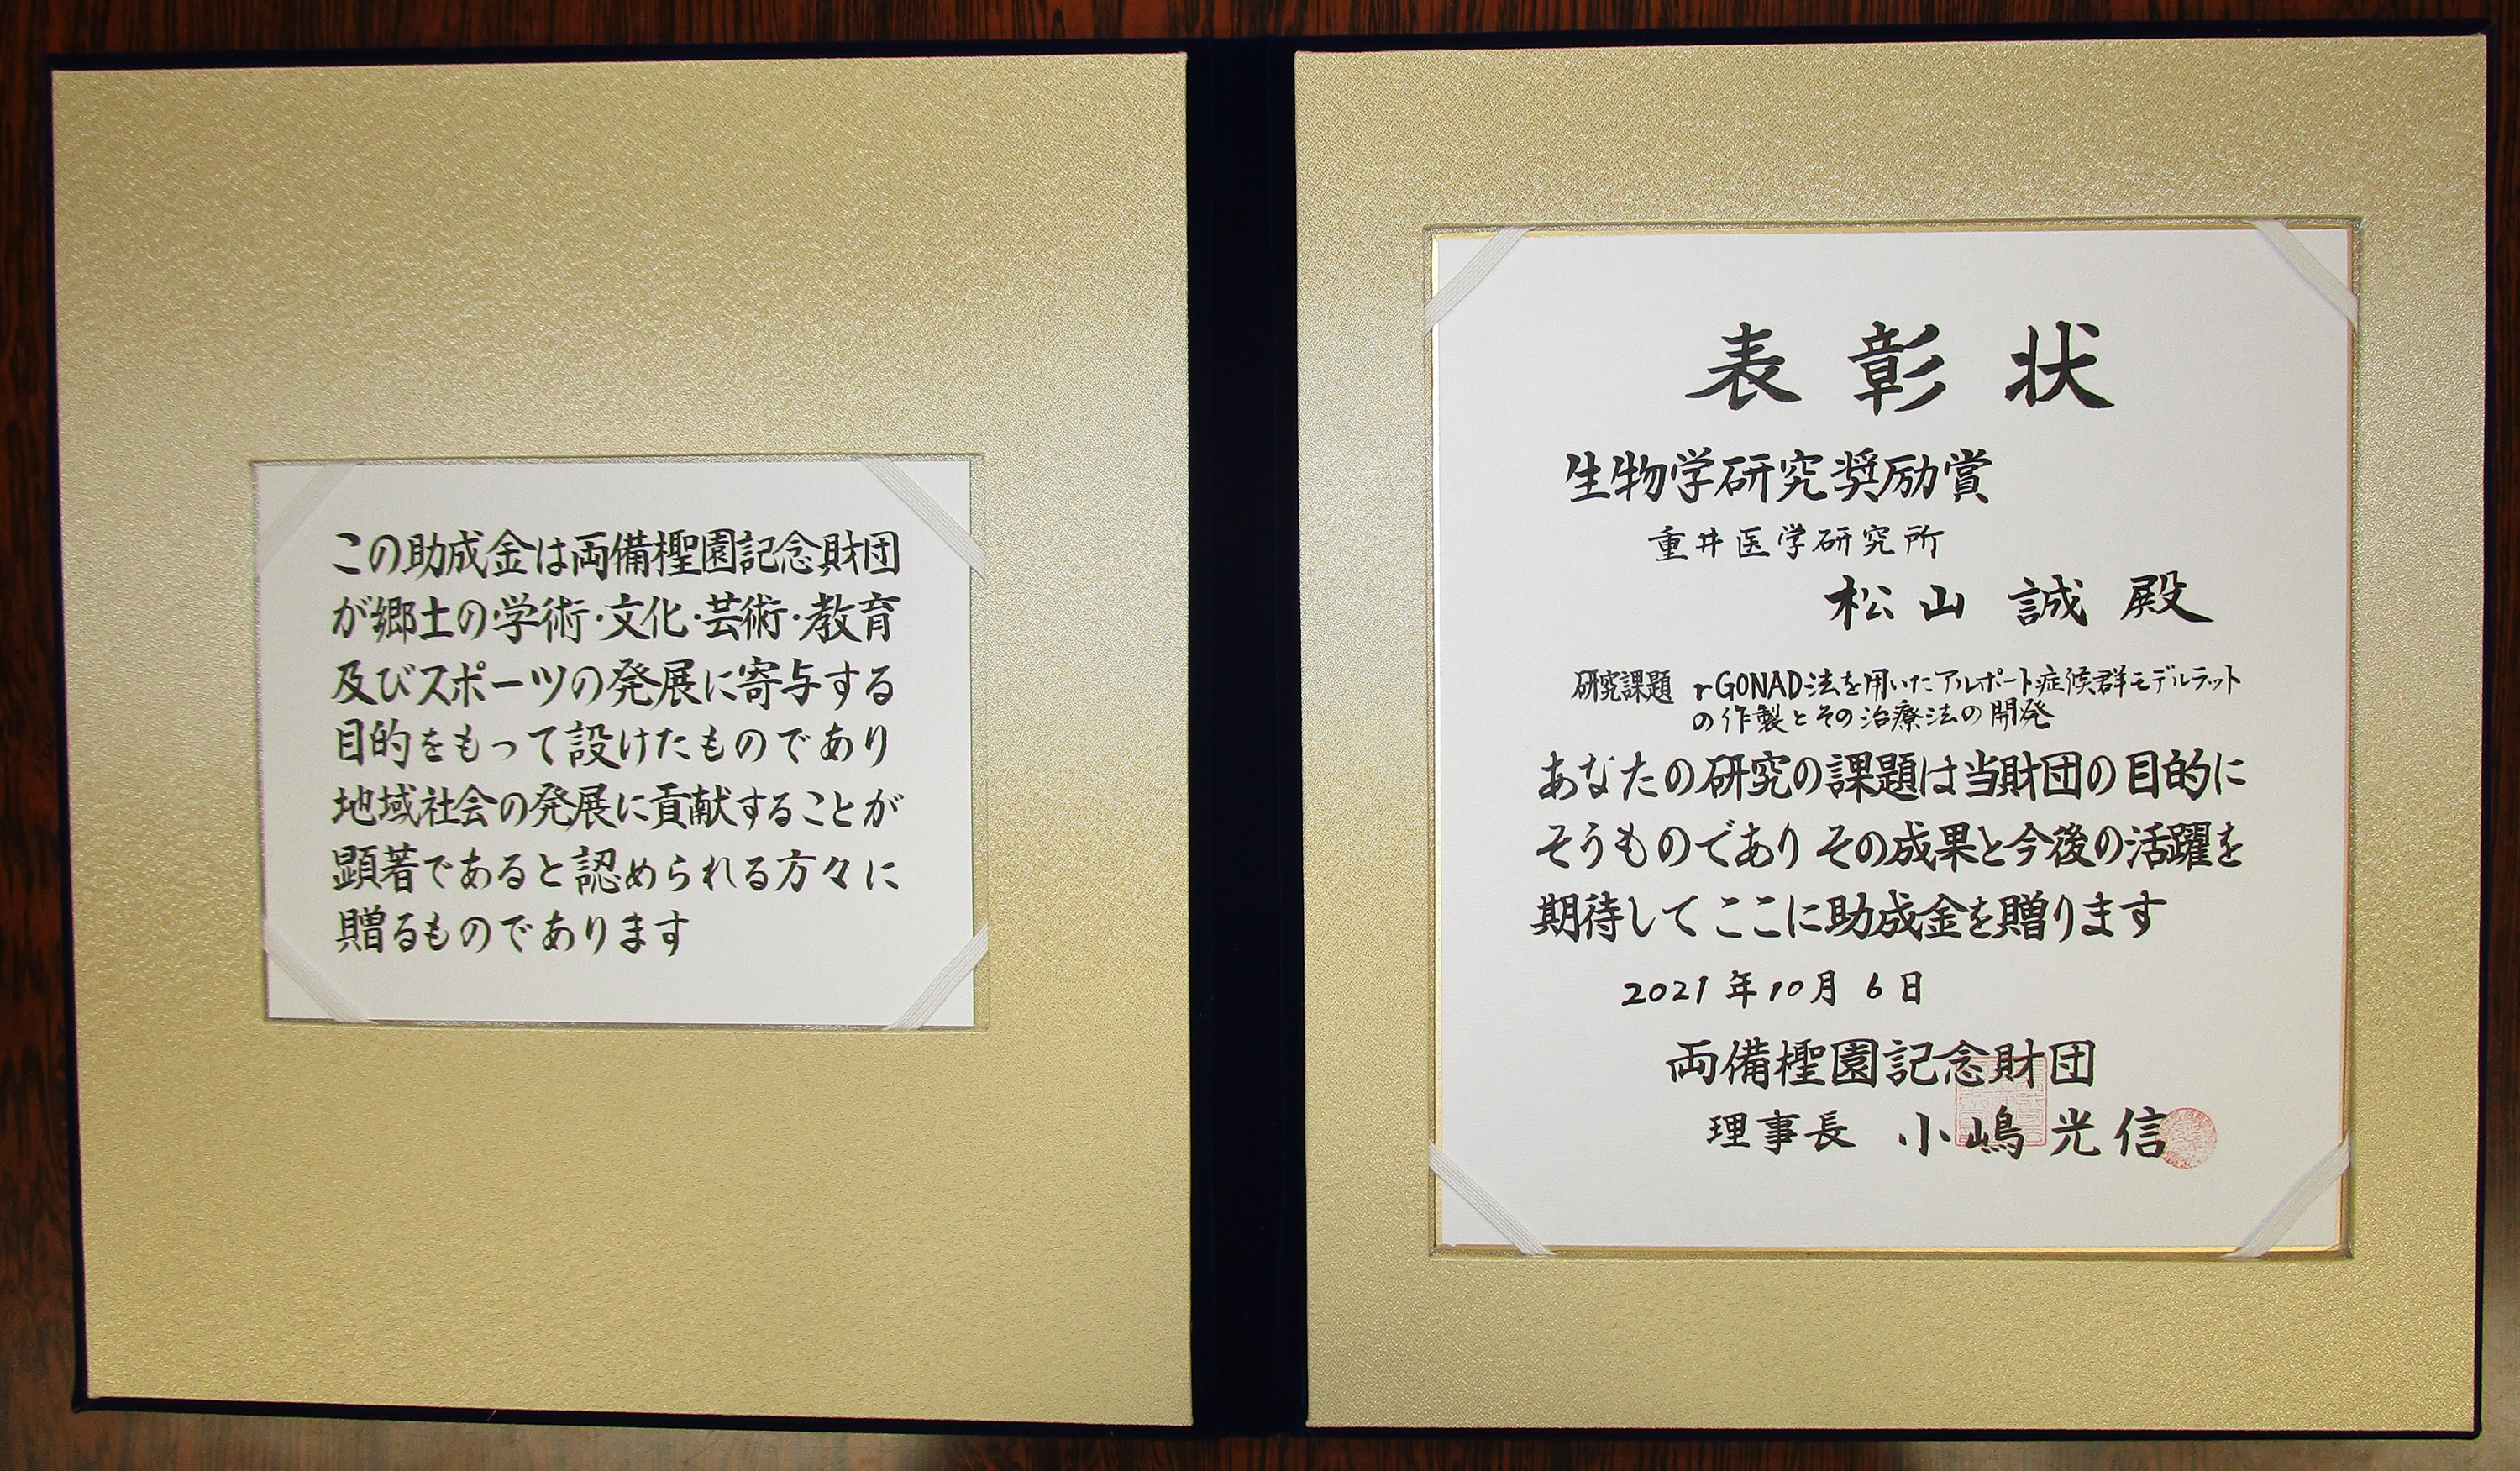 この助成金は両備檉園記念財団
が郷土の学術・文化・芸術・教育
及びスポーツの発展に寄与する
目的をもって設けたものであり
地域社会の発展に貢献することが
顕著であると認められる方々に
贈るものであります
表彰状
生物学研究奨励賞
重井医学研究所
松山 誠 殿
研究課題 r-GONAD法を用いたアルポート症候群モデルラット
の作製とその治療法の開発
あなたの研究の課題は当財団の目的に
そうものであり その成果と今後の活躍を
期待して ここに助成金を贈ります
2021年10月 6日
両備檉園記念財団
理事長 小嶋光信